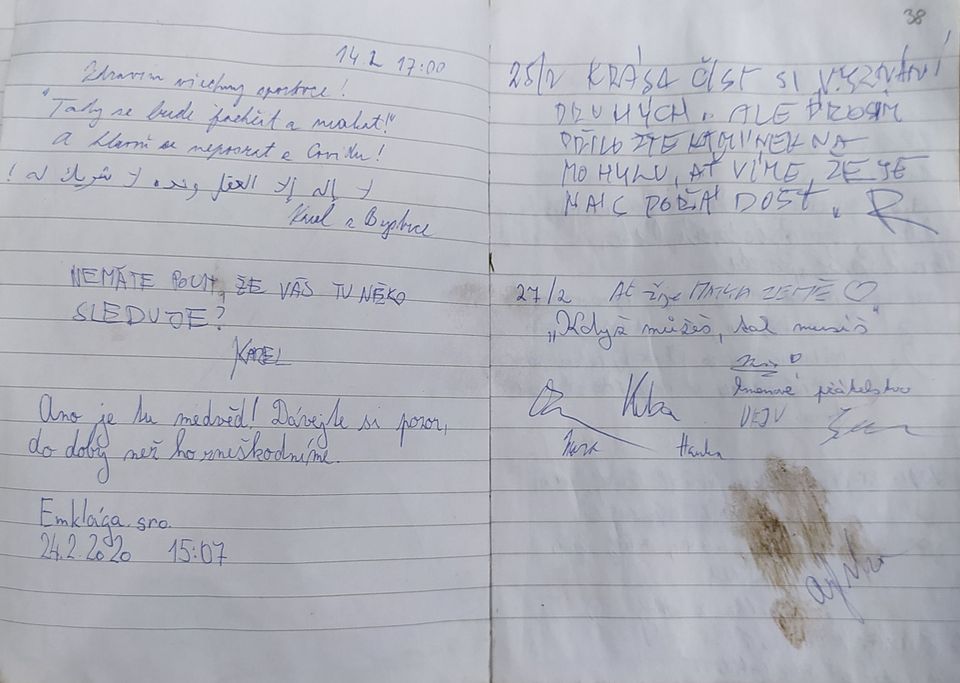 14.2 17:00
Zdravím všechny sportovce!
"Tady se bude fachčit a makat!"
A hlavně se neposrat z Covidu!
لا إله إلا وحده لا شريك له !
Karel z Bystrce
NEMÁTE POCIT, ŽE VÁS TU NĚKO
SLEDUJE?
KAREL
Ano je tu medvěd! Dávejte si pozor,
do doby než ho zneškodníme.
Emklága. sro.
24.2.2020 15:07
38
25/2 KRÁSA ČÍST SI VYZNÁNÍ
DRUHÝCH. ALE PROSÍM
PŘILOŽTE KAMÍNEK NA
MOHYLU, AŤ VÍME, ŽE JE
NÁS POŘÁD DOST. R
27/2 Ať žije MATKA ZEMĚ ♡
„Když můžeš, tak musíš"
Kuba
přátelstvo
Hanka